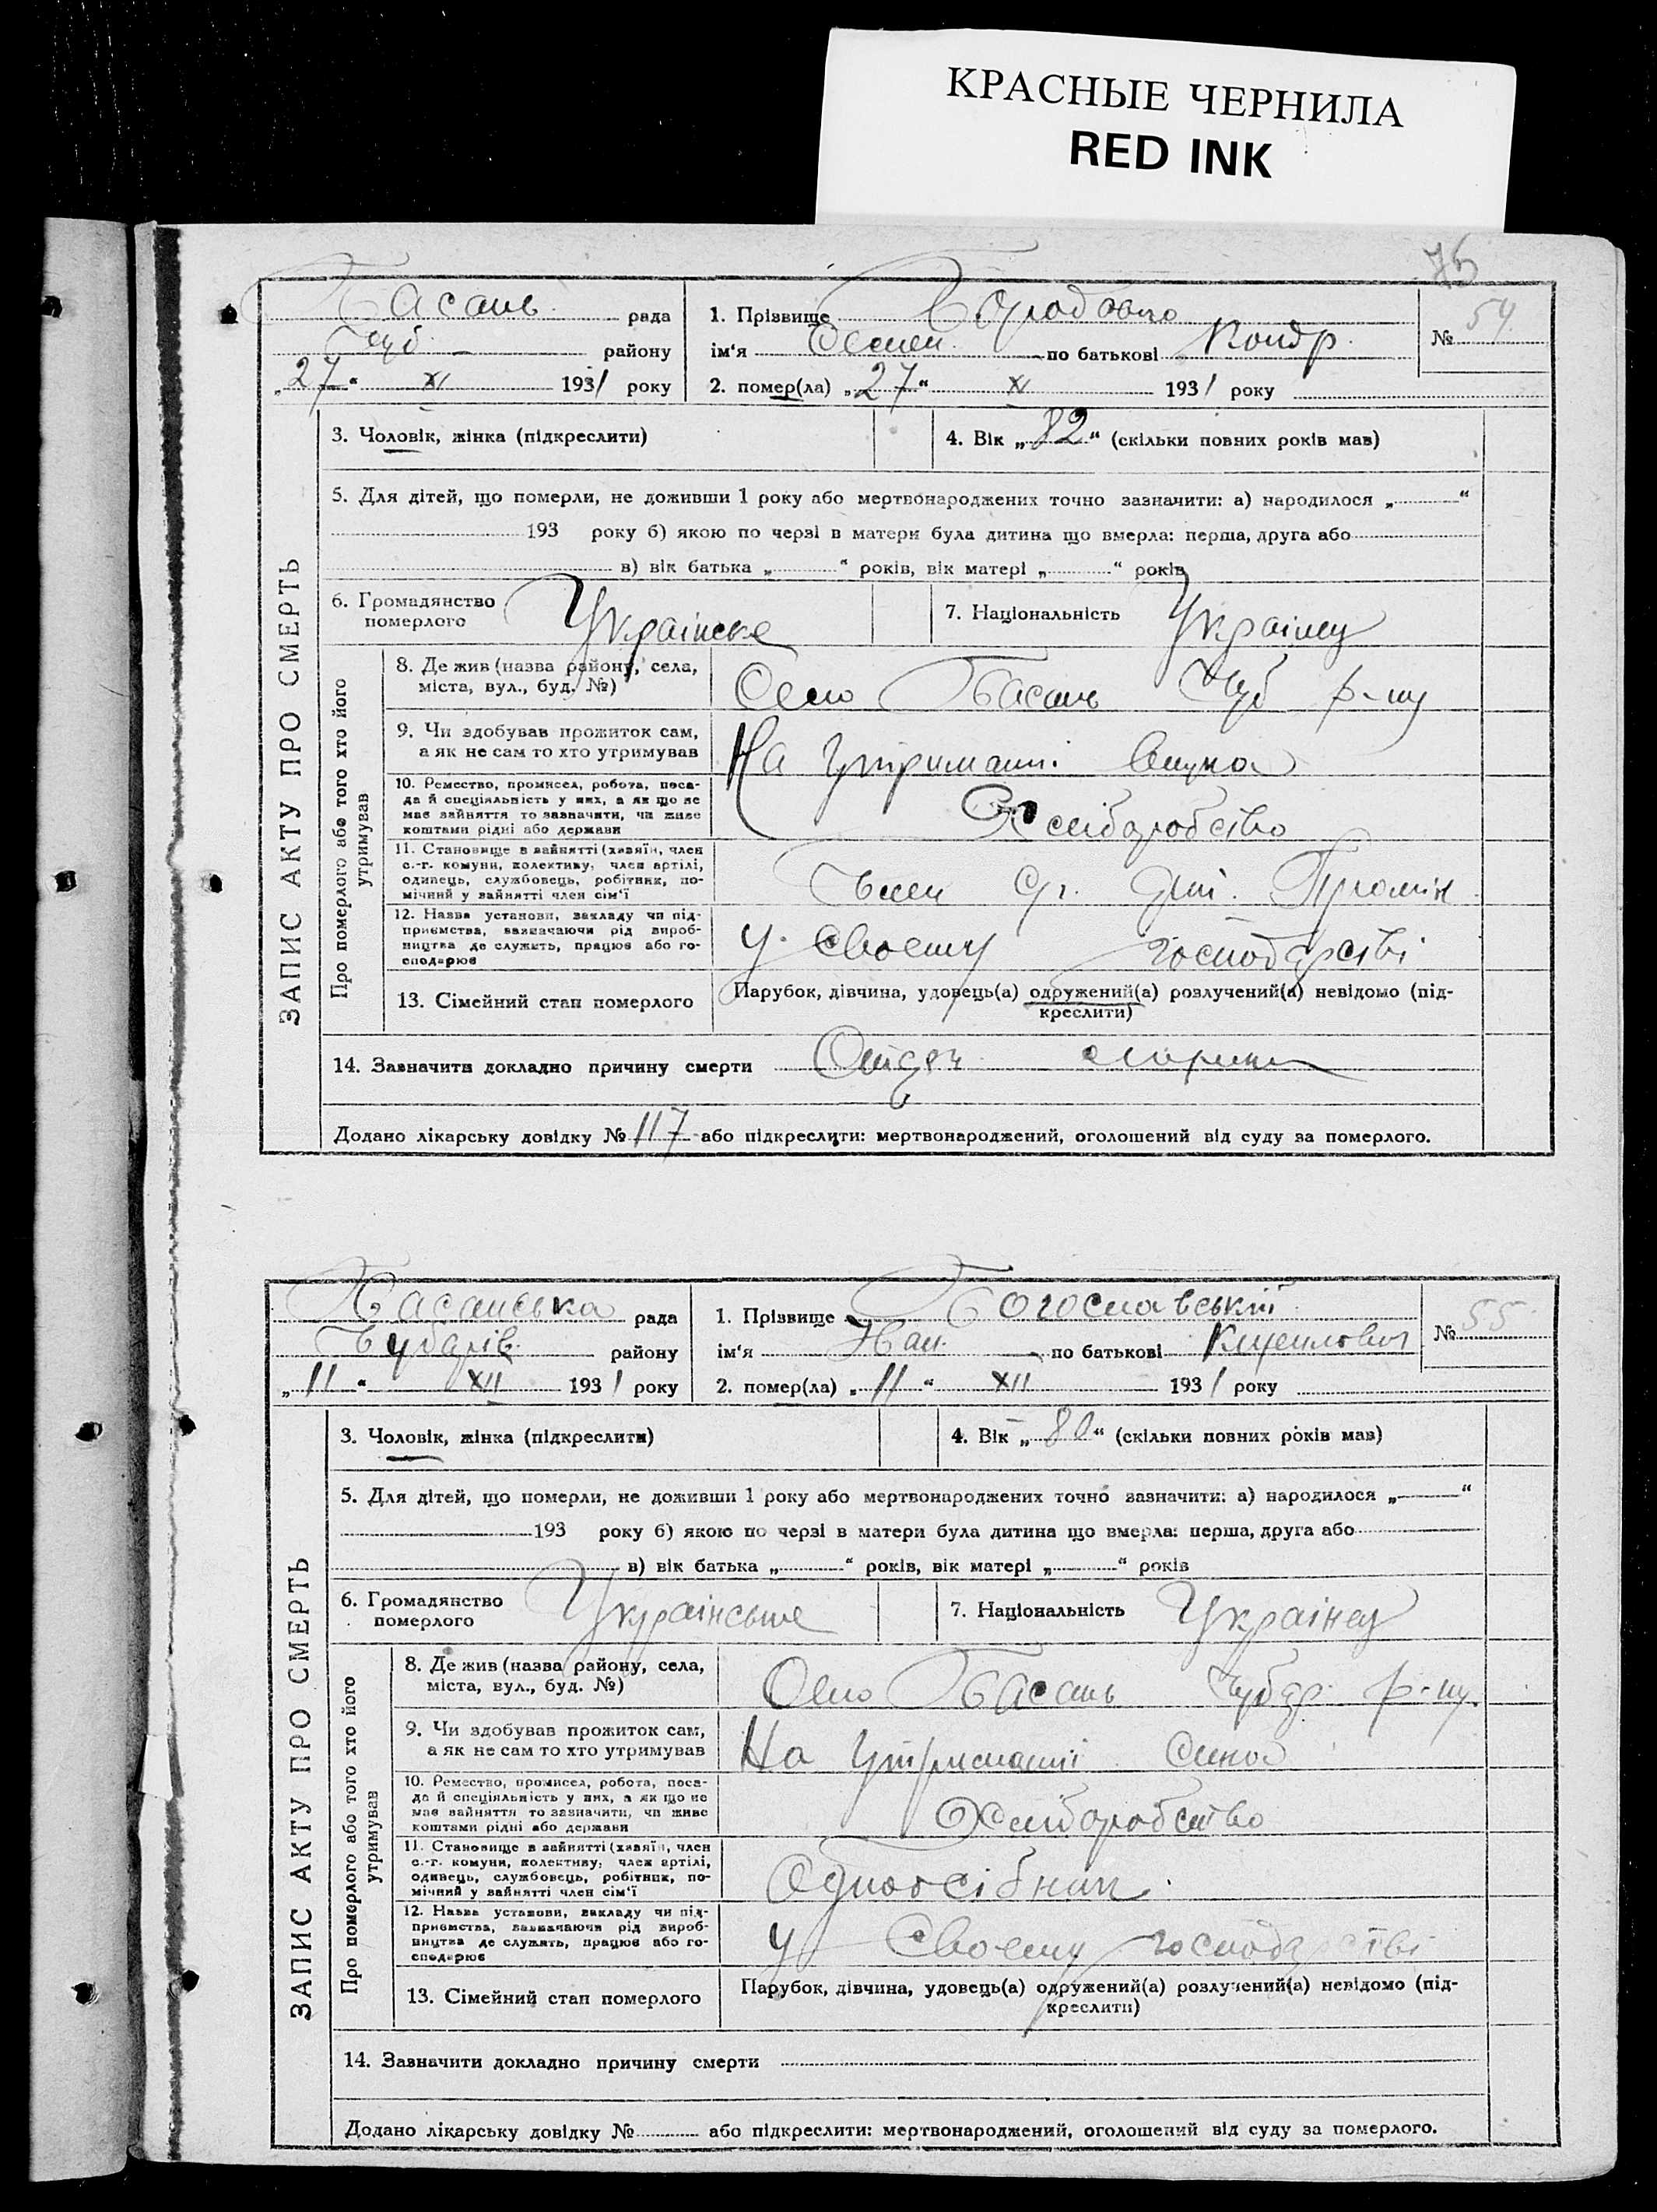 КРАСНЫЕ ЧЕРНИЛА
RED INK
75
Басань рада
Чуб району
„27“ XI 1931 року
1. Прізвище Бородавко
ім'я Семен по батькові Кондр.
№ 54
2. помер(ла) „27“ XI 1931 року
3. Чоловік, жінка (підкреслити)
4. Вік „82“ (скільки повних років мав)
ЗАПИС АКТУ ПРО СМЕРТЬ
5. Для дітей, що померли, не доживши 1 року або мертвонароджених точно зазначити: а) народилося „ “
193 року б) якою по черзі в матери була дитина що вмерла: перша, друга або
в) вік батька „ “ років, вік матері „ “ років
6. Громадянство
померлого
Українске
7. Національність Українец
Про померлого або того хто його
утримував
8. Де жив (назва району, села,
міста, вул., буд. №)
Село Басань Чуб р-ну
9. Чи здобував прожиток сам,
а як не сам то хто утримував
На утриманні внука
10. Ремество, промисел, робота, поса-
да й спеціяльність у них, а як що не
має зайняття то зазначити, чи живе
коштами рідні або держави
Хліборобство
11. Становище в зайнятті (хазяїн, член
с.-г. комуни, колективу, член артілі,
одинець, службовець, робітник, по-
мічний у зайнятті член сім'ї
Член Сг. Арт. Промінь
12. Назва установи, закладу чи під-
приємства, зазначаючи рід вироб-
ництва де служить, працює або го-
сподарює
У своему господарстві
13. Сімейний стан померлого
Парубок, дівчина, удовець(а) одружений(а) розлучений(а) невідомо (під-
креслити)
14. Зазначити докладно причину смерти
Додано лікарську довідку № 117 або підкреслити: мертвонароджений, оголошений від суду за померлого.
Басанська рада
Чубарів району
„11“ XII 1931 року
1. Прізвище Богославський
ім'я Иван по батькові
№ 55
2. помер(ла) „11“ XII 1931 року
3. Чоловік, жінка (підкреслити)
4. Вік „80“ (скільки повних років мав)
ЗАПИС АКТУ ПРО СМЕРТЬ
5. Для дітей, що померли, не доживши 1 року або мертвонароджених точно зазначити: а) народилося „ “
193 року б) якою по черзі в матери була дитина що вмерла: перша, друга або
в) вік батька „ “ років, вік матері „ “ років
6. Громадянство
померлого
Українське
7. Національність Українец
Про померлого або того хто його
утримував
8. Де жив (назва району, села,
міста, вул., буд. №)
Село Басань Чубар р-ну.
9. Чи здобував прожиток сам,
а як не сам то хто утримував
На утриманні сина
10. Ремество, промисел, робота, поса-
да й спеціяльність у них, а як що не
має зайняття то зазначити, чи живе
коштами рідні або держави
Хліборобство
11. Становище в зайнятті (хазяїн, член
с.-г. комуни, колективу, член артілі,
одинець, службовець, робітник, по-
мічний у зайнятті член сім'ї
Одноосібник.
12. Назва установи, закладу чи під-
приємства, зазначаючи рід вироб-
ництва де служить, працює або го-
сподарює
У своему господарстві
13. Сімейний стан померлого
Парубок, дівчина, удовець(а) одружений(а) розлучений(а) невідомо (під-
креслити)
14. Зазначити докладно причину смерти
Додано лікарську довідку № або підкреслити: мертвонароджений, оголошений від суду за померлого.